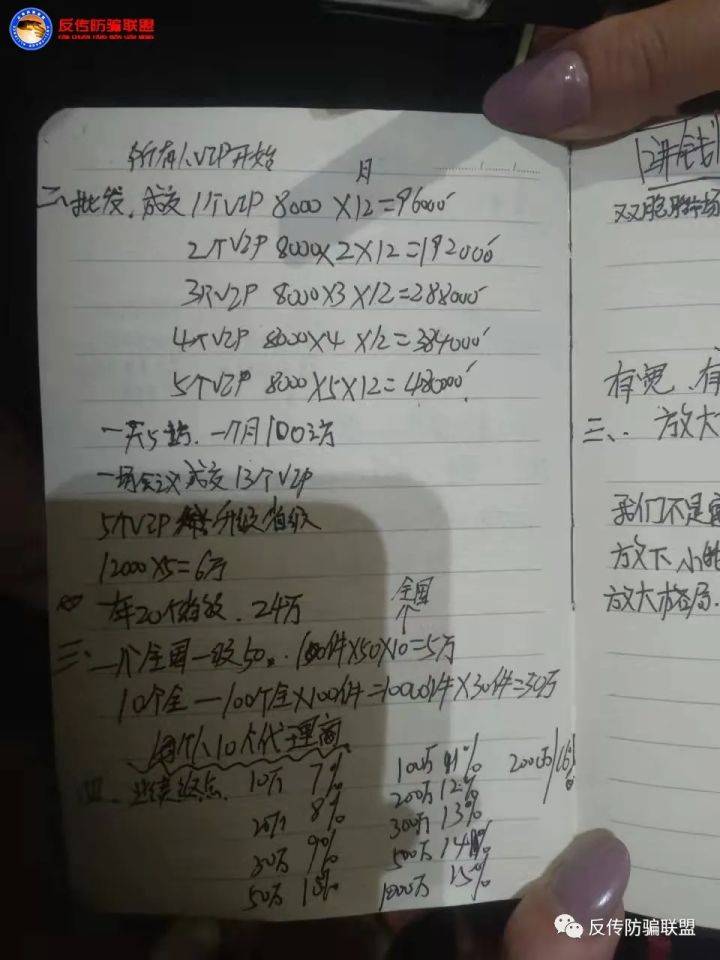 反传防骗联盟
FAN CHUAN FANG PIAN LIAN MENG
所有人VIP开始
月
二、批发、成交1个VIP 8000×12=96000
2个VIP 8000×2×12=192000
3个VIP 8000×3×12=288000
4个VIP 8000×4×12=384000
5个VIP 8000×5×12=480000
一个月100万
一场会议成交13个VIP
5个VIP 升级省级
12000×5=6万
一年20个省级、24万
全国
个
三、一个全国一级50。100件×50×10=5万
10个全—100个全×100件=10000件×30件=30万
每个人10个代理商
四、业绩终点 10万 7%
20万 8%
30万 9%
50万 10%
100万 11%
200万 12%
300万 13%
500万 14%
1000万 15%
2000万 16%
双胞胎市场
有宽、有
三、放大
我们不是
放下小
放大格局.
反传防骗联盟